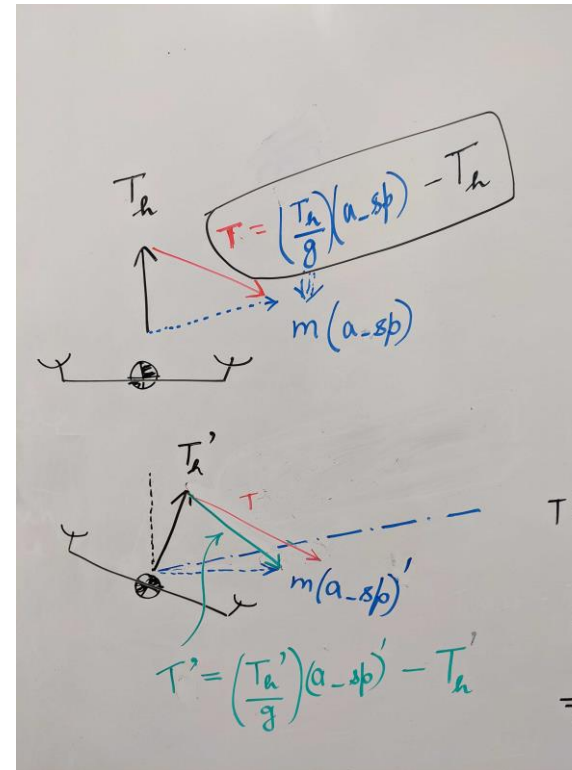 T_h
T = (T_h/g)(a_sp) - T_h
m(a_sp)
T_h'
T
T
m(a_sp)'
T' = (T_h'/g)(a_sp)' - T_h'
=